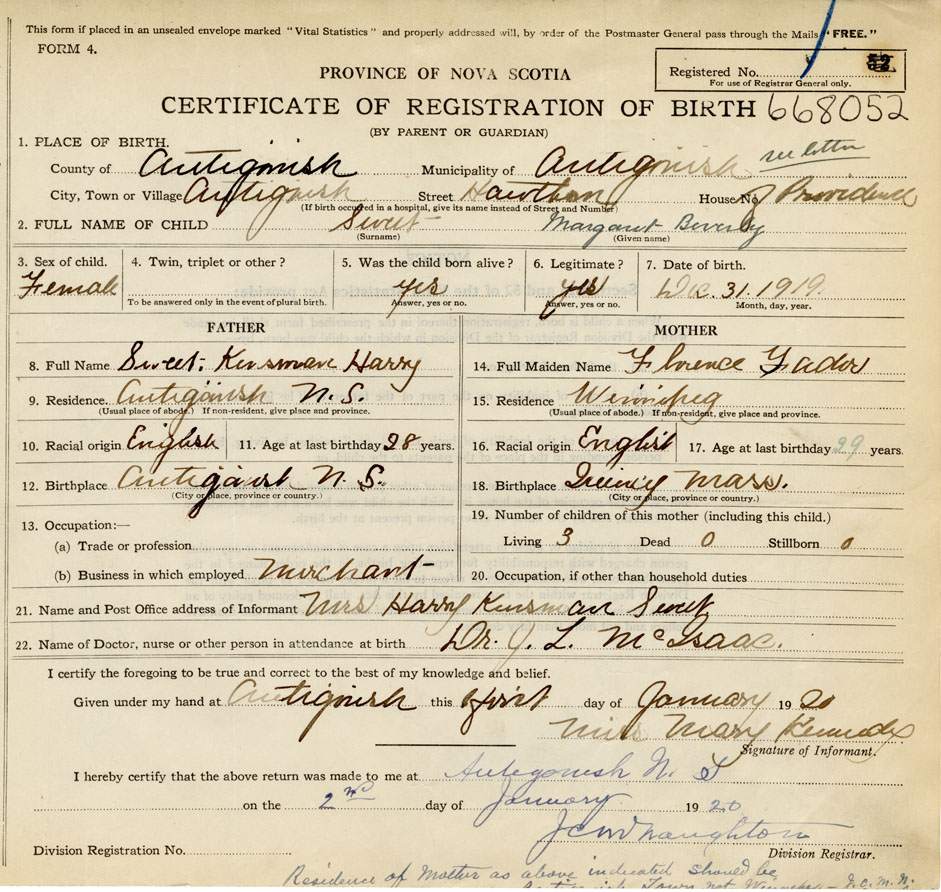 This form if placed in an unsealed envelope marked "Vital Statistics" and properly addressed will, by order of the Postmaster General pass through the Mails "FREE."
FORM 4.
PROVINCE OF NOVA SCOTIA
Registered No. 52
For use of Registrar General only.
CERTIFICATE OF REGISTRATION OF BIRTH 668052
(BY PARENT OR GUARDIAN)
1. PLACE OF BIRTH. see letter
County of Antigonish Municipality of Antigonish
City, Town or Village Antigonish Street Hawthorn House No of Providence
(If birth occurred in a hospital, give its name instead of Street and Number)
2. FULL NAME OF CHILD Sweet Margaret Beverly
(Surname) (Given name)
3. Sex of child. 4. Twin, triplet or other? 5. Was the child born alive? 6. Legitimate? 7. Date of birth.
Female yes yes Dec. 31. 1919.
To be answered only in the event of plural birth. Answer, yes or no. Answer, yes or no. Month, day, year.
FATHER MOTHER
8. Full Name Sweet. Kinsman Harry 14. Full Maiden Name Florence
9. Residence. Antigonish N.S. 15. Residence Winnipeg
(Usual place of abode.) If non-resident, give place and province. (Usual place of abode.) If non-resident, give place and province.
10. Racial origin English 11. Age at last birthday 28 years. 16. Racial origin English 17. Age at last birthday 29 years.
12. Birthplace Antigonish N.S. 18. Birthplace Quincy Mass.
(City or place, province or country.) (City or place, province or country.)
13. Occupation:— 19. Number of children of this mother (including this child.)
(a) Trade or profession Living 3 Dead 0 Stillborn 0
(b) Business in which employed Merchant 20. Occupation, if other than household duties
21. Name and Post Office address of Informant Mrs Harry Kinsman Sweet
22. Name of Doctor, nurse or other person in attendance at birth Dr. J. L. McIsaac.
I certify the foregoing to be true and correct to the best of my knowledge and belief.
Given under my hand at Antigonish this first day of January 1920
Miss Mary Kennedy
Signature of Informant.
I hereby certify that the above return was made to me at Antigonish N. S
on the 2nd day of January 1920
Division Registration No. Division Registrar.
Residence of Mother as above indicated should be
Antigonish Town not Winnipeg - J.C.M.N.